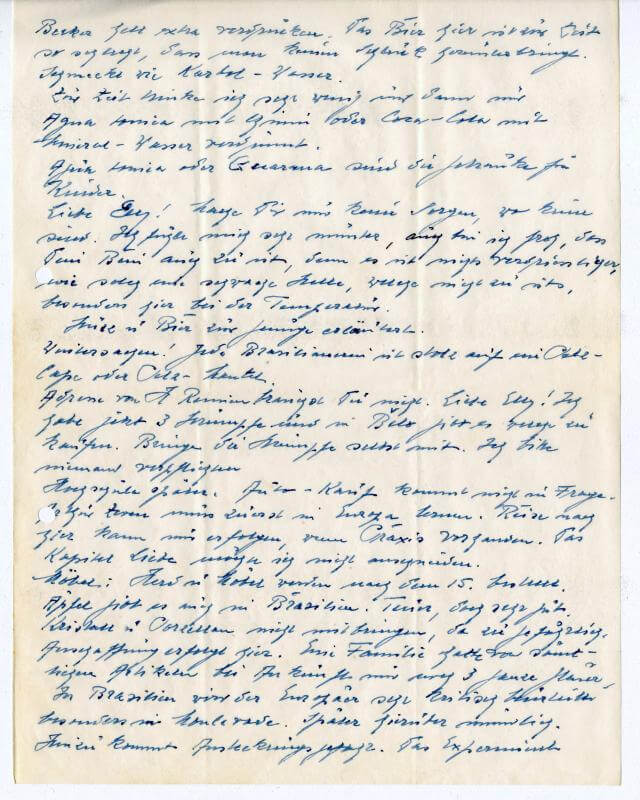 Becher hell extra verdrücken. Das Bier hier ist zur Zeit
so schlecht, dass man keinen Schluck herunterbringt.
Schmeckt wie Karbol-Wasser.
Zur Zeit trinke ich sehr wenig und dann nur
Agua tonica mit Gin oder Coca-Cola mit
Mineral-Wasser verdünnt.
Agua tonica oder Guarana sind die Getränke für
Kinder.
Liebe Elly! Mache Dir nur keine Sorgen, wo keine
sind. Ich fühle mich sehr munter, auch bin ich froh, dass
Dein Bein auch zu ist, denn es ist nichts verdriesslicher,
wie solch eine schwache Stelle, welche nicht zu ist,
besonders hier bei der Temperatur.
u Bier zur Genüge erläutert.
Wintersachen! Jede Brasilianerin ist stolz auf ein
Cape oder Mantel.
Adresse von H. brauchst Du nicht. Liebe Elly! Ich
habe jetzt 3 Strümpfe und in Belo gibt es welche zu
kaufen. Bringe die Strümpfe selbst mit. Ich bitte
niemand verpflichten
Hochschule später. Auto-Kauf kommt nicht in Frage.
muss zuerst in Europa lernen. Reise nach
hier kann nur erfolgen, wenn Praxis vorhanden. Das
Kapitel Liebe möchte ich nicht anschneiden.
Möbel: Herd u Möbel werden nach dem 15. bestellt.
Äpfel gibt es auch in Brasilien. Teuer, doch sehr gut.
Kristall u Porzellan nicht mitbringen, da zu gefährlich.
Anschaffung erfolgt hier. Eine Familie hatte von sämt-
lichen Artikeln bei Ankunft nur noch 3 ganze Gläser.
In Brasilien wird der Europäer sehr kritisch
besonders in Monlevade. Später hierüber mündlich.
Hinzu kommt Ansteckungsgefahr. Das Experiment